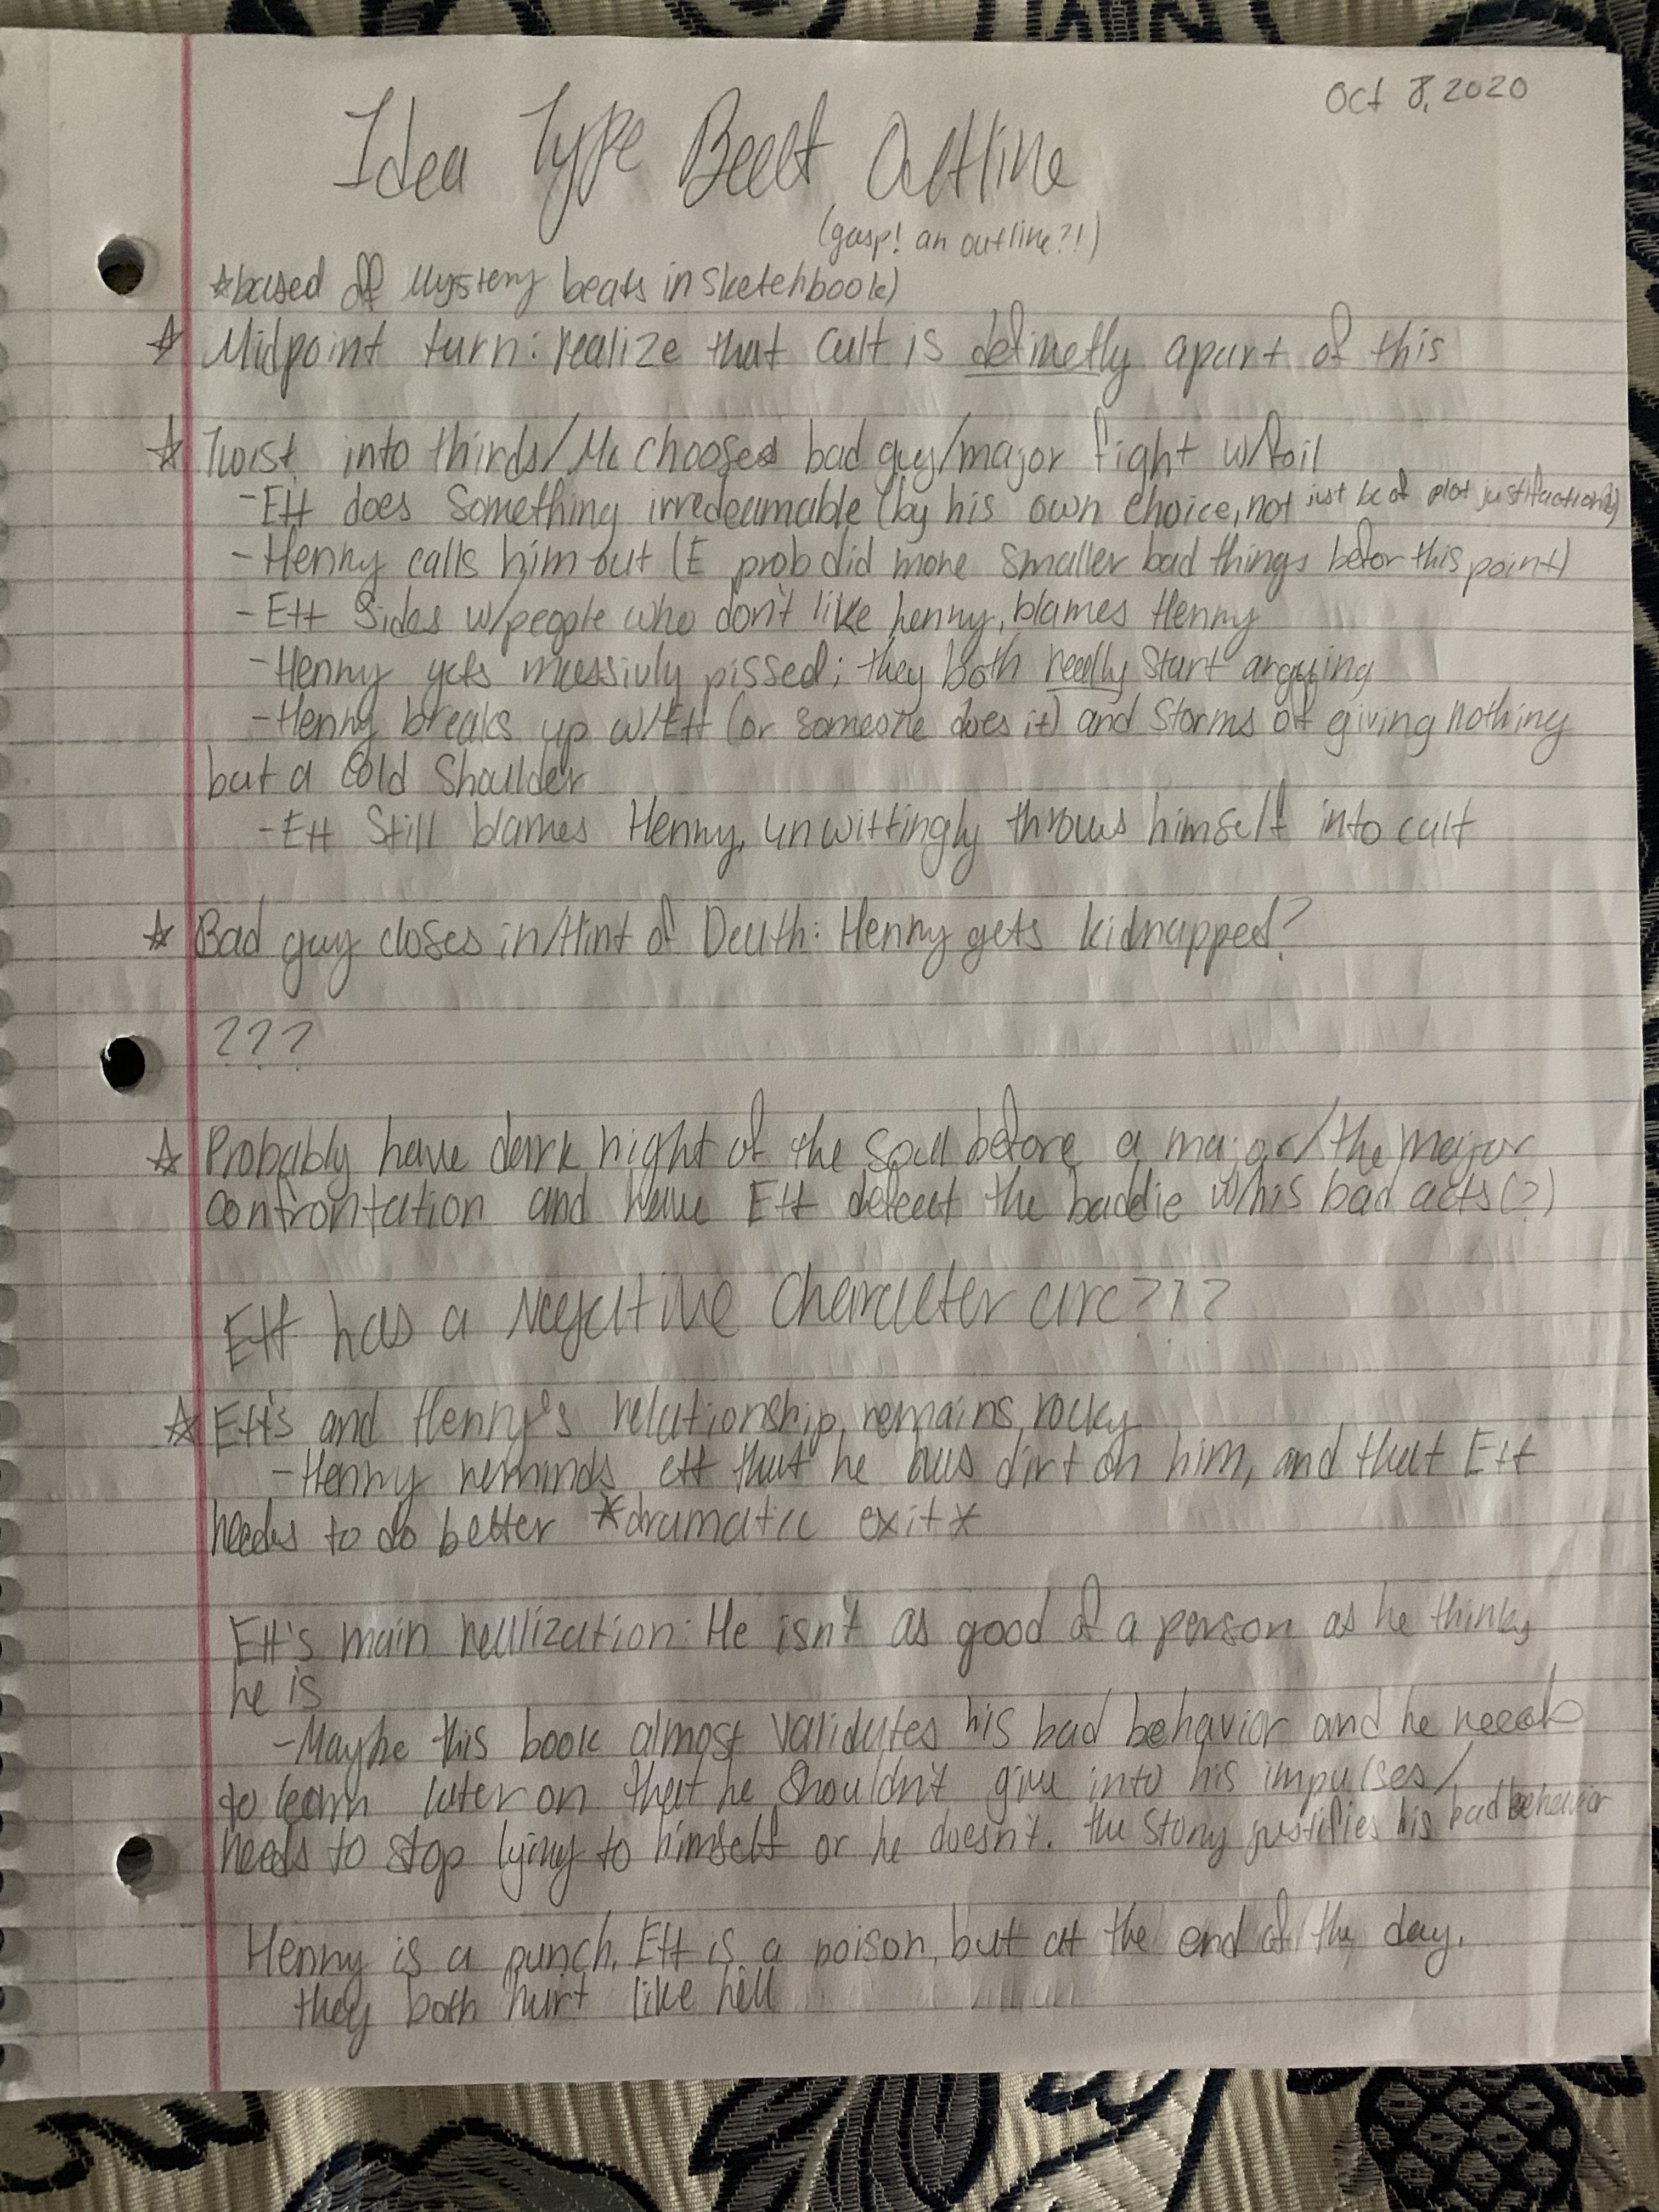 Oct 8, 2020
Idea Type Beat Outline
(gasp! an outline?!)
☆based off Mystery beats in sketchbook)
☆ Midpoint turn: realize that cult is definetly apart of this
☆ Twist into thirds/Mc chooses bad guy/major fight w/foil
-Ett does something irredeamable (by his own choice, not just bc of plot justifications)
-Henny calls him out (E prob did more smaller bad things befor this point)
-Ett Sides w/people who don't like henny, blames Henny
-Henny gets massivly pissed; they both really start arguing
-Henny breaks up w/Ett (or someone does it) and storms off giving nothing
but a cold shoulder
-Ett still blames Henny, unwittingly throws himself into cult
☆ Bad guy closes in/Hint of Death: Henny gets kidnapped?
???
☆ Probably have dark night of the soul before a major/the major
confrontation and have Ett defeat the baddie w/his bad acts(?)
Ett has a Negative Character arc???
☆ Ett's and Henny's relationship remains rocky
-Henny reminds ett that he has dirt on him, and that Ett
needs to do better *dramatic exit*
Ett's main reallization: He isn't as good of a person as he thinks
he is
-Maybe this book almost validates his bad behavior and he needs
to learn later on that he shouldn't give into his impulses/
needs to stop lying to himself or he doesn't. the story justifies his bad behavior
Henny is a punch, Ett is a poison, but at the end of the day,
they both hurt like hell